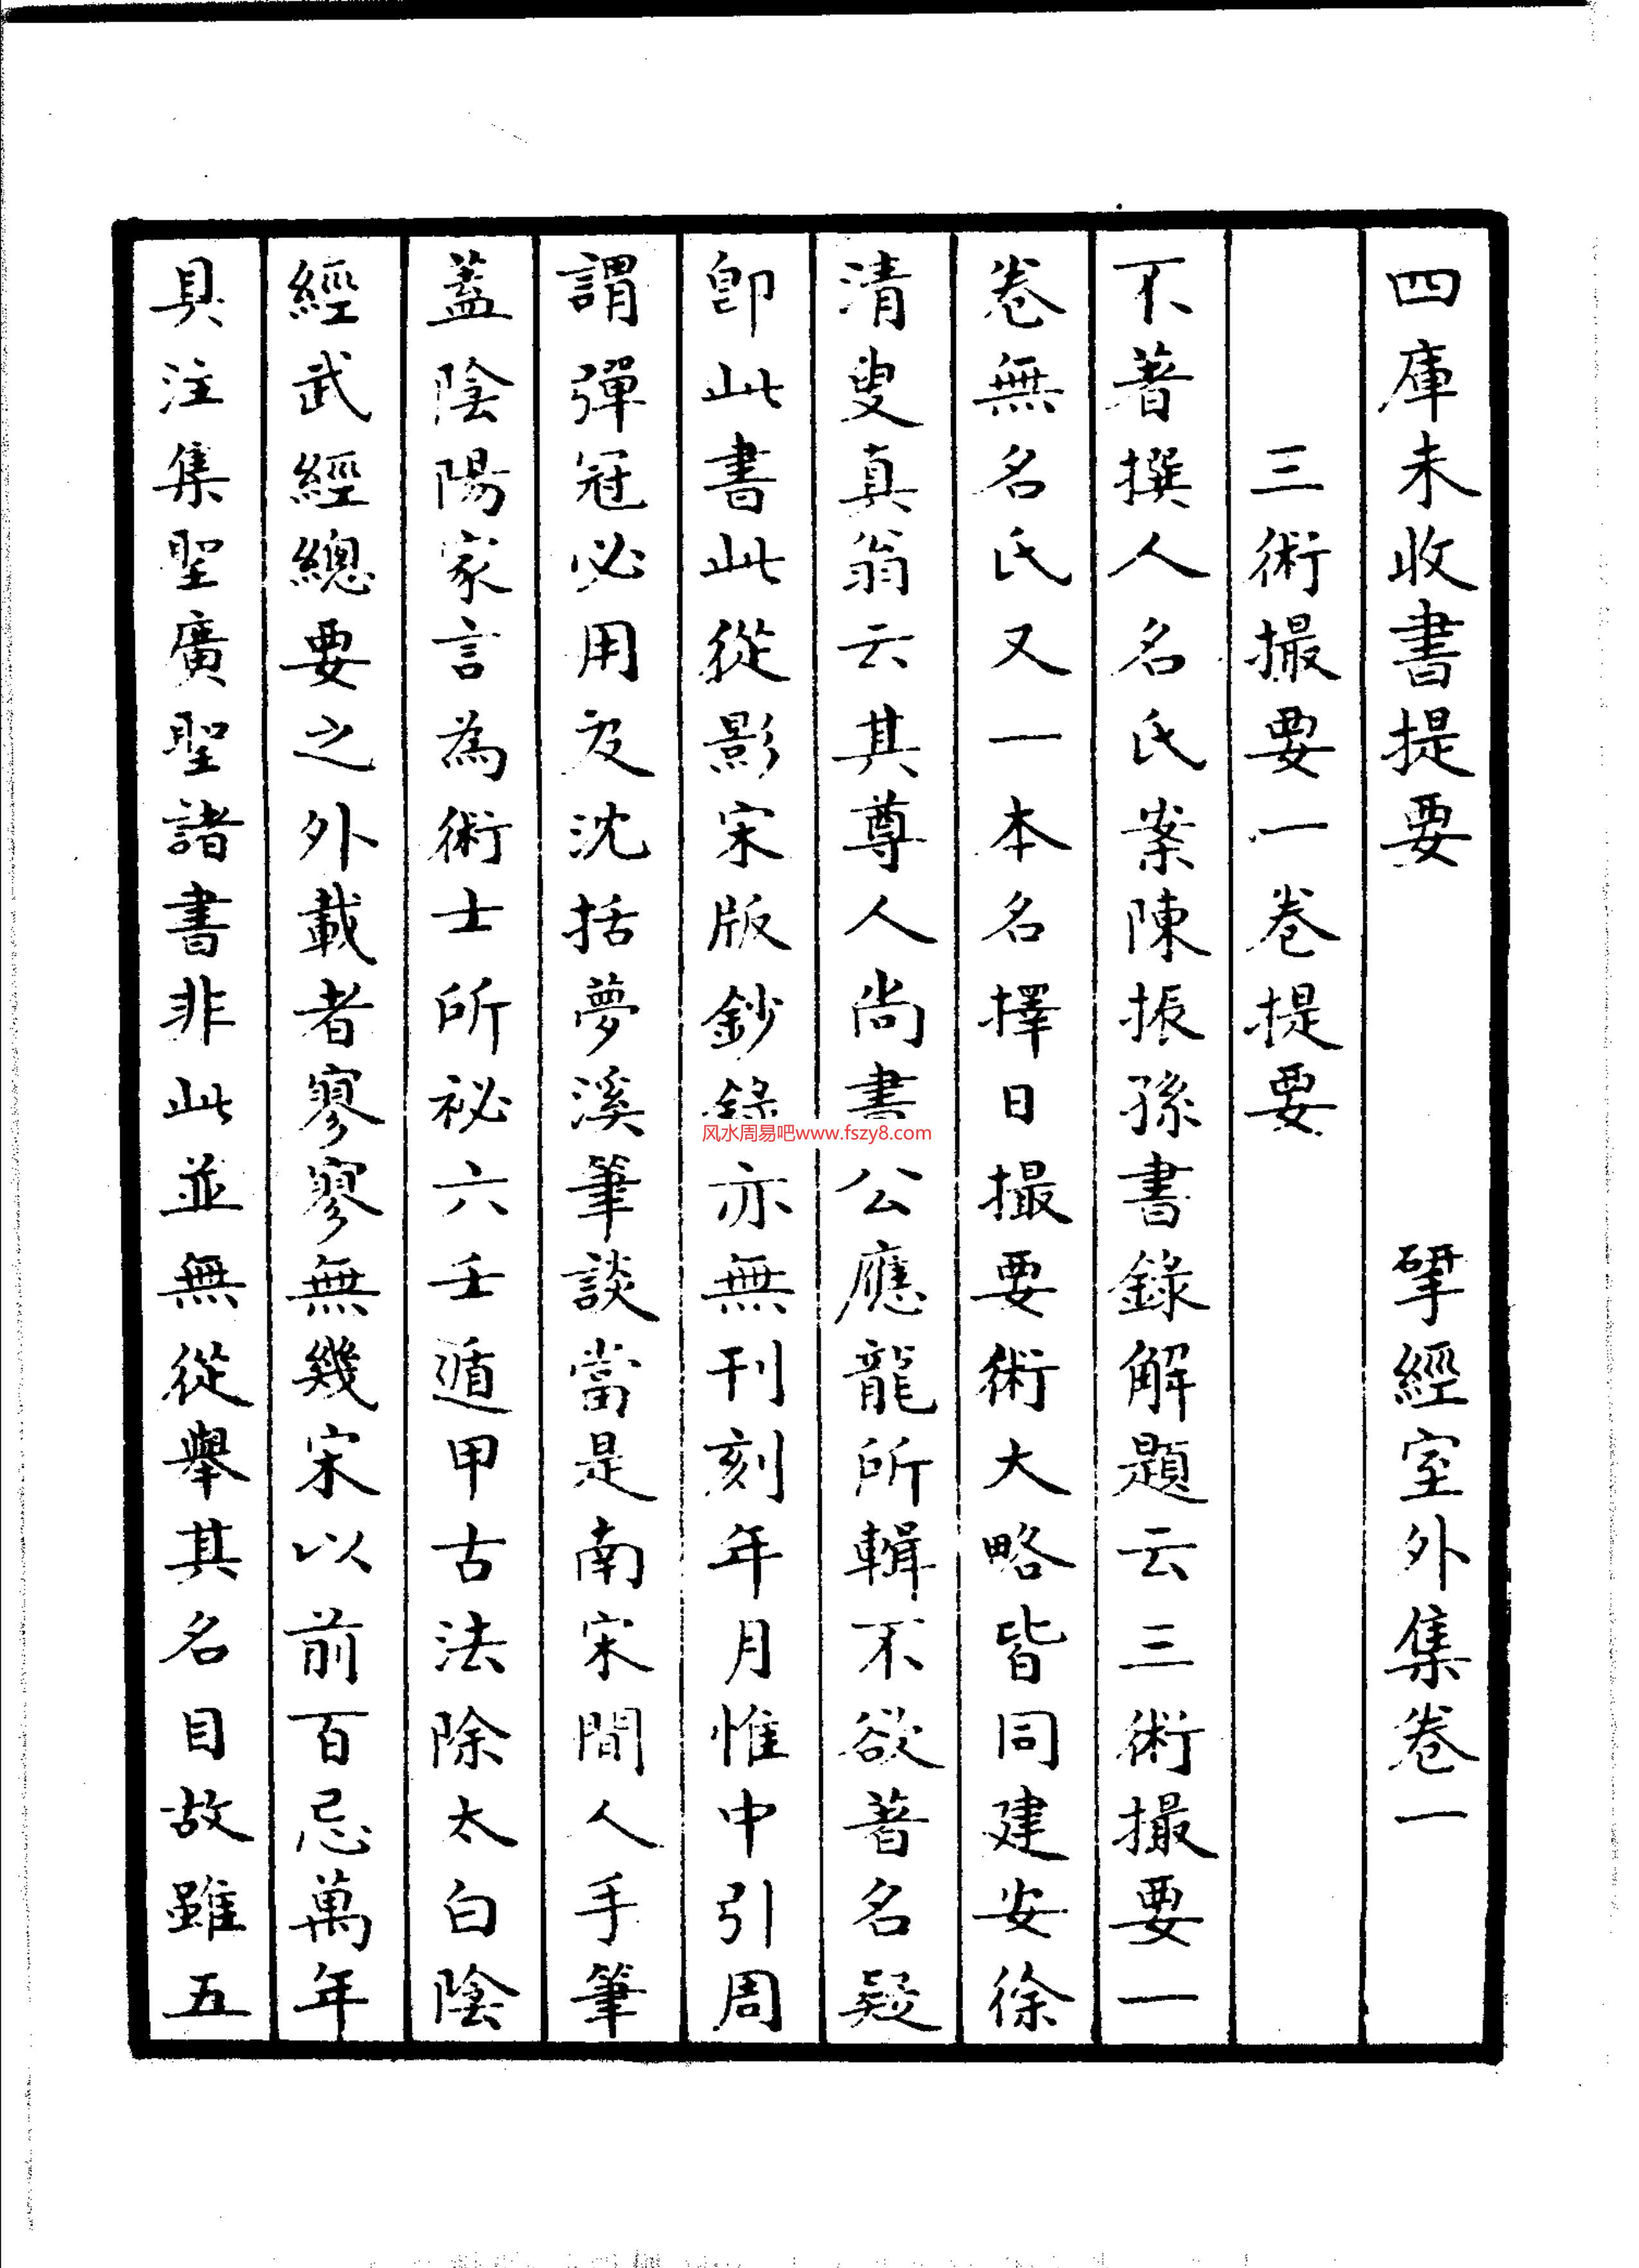 四庫未收書提要 揅經室外集卷一
三術撮要一卷提要
不著撰人名氏案陳振孫書錄解題云三術撮要一
卷無名氏又一本名擇日撮要術大略皆同建安徐
清叟真翁云其尊人尚書公應龍所輯不欲著名疑
卽此書此從影宋版鈔錄亦無刊刻年月惟中引周
謂彈冠必用及沈括夢溪筆談當是南宋間人手筆
蓋陰陽家言為術士所祕六壬遁甲古法除太白陰
經武經總要之外載者寥寥無幾宋以前百忌萬年
具注集聖廣聖諸書非此並無從舉其名目故雖五
风水周易吧www.fszy8.com